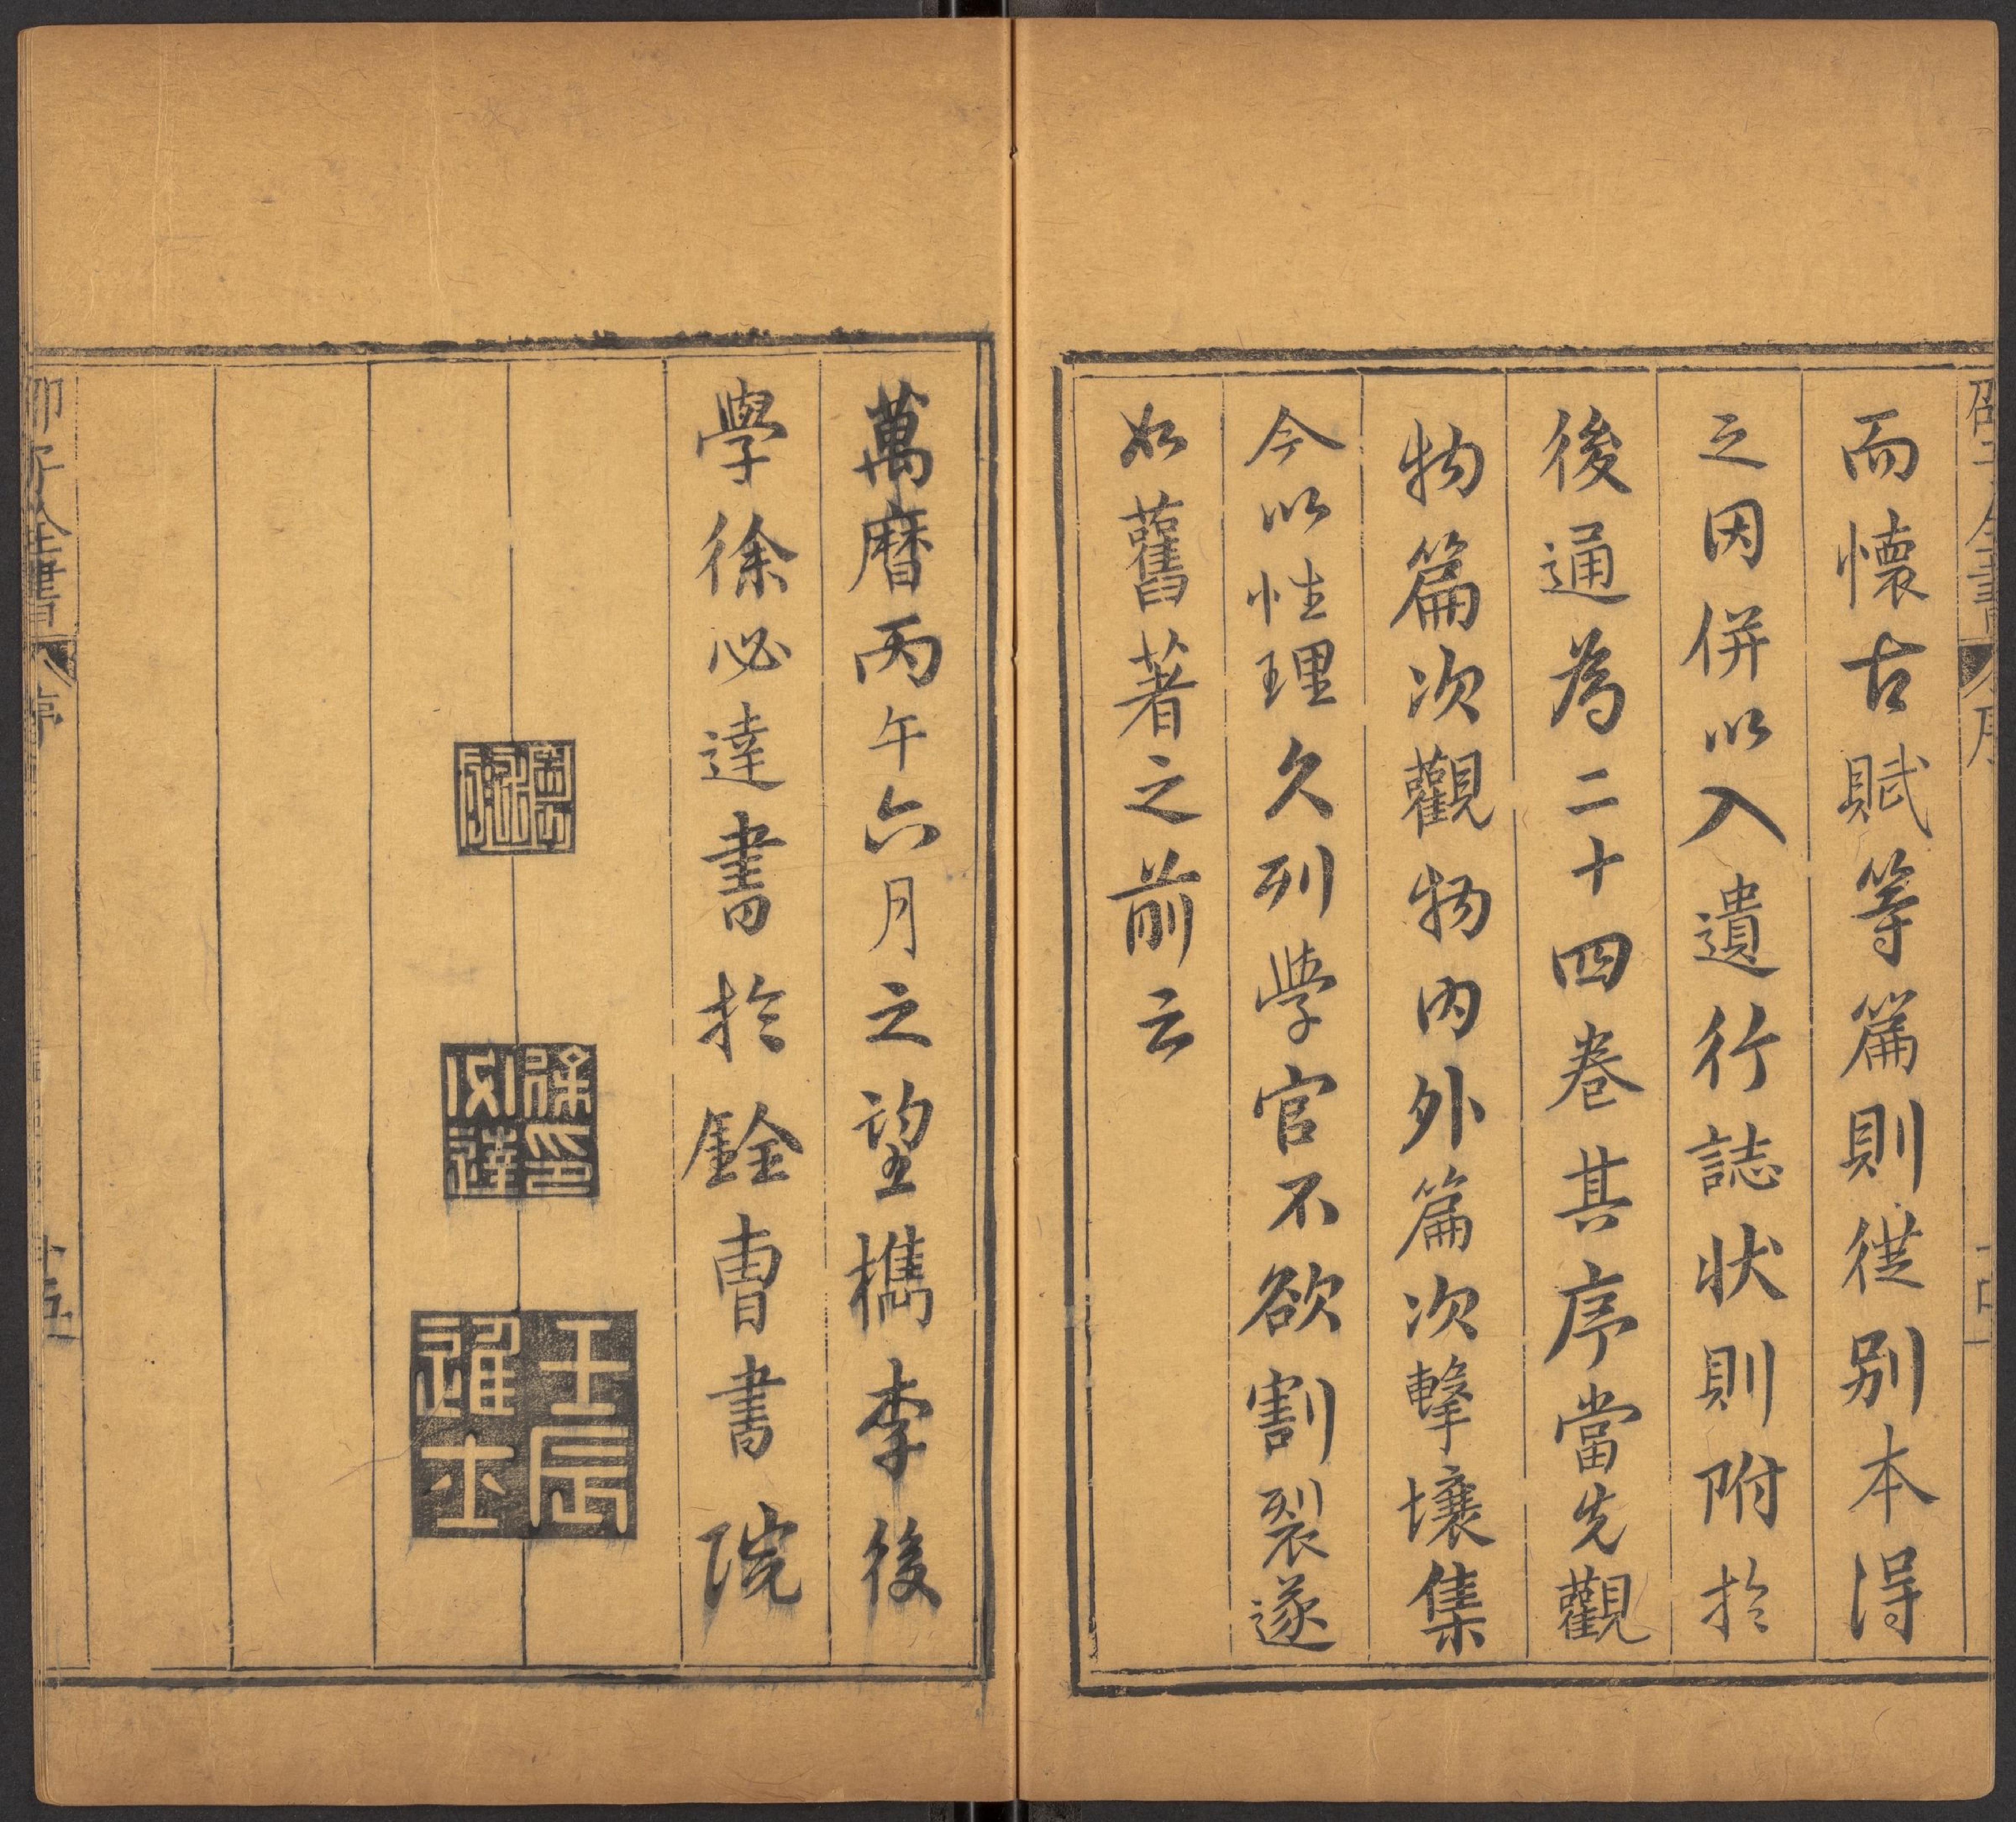 邵子全書 序
而懷古賦等篇則從别本得
之因併以入遺行誌状則附於
後通為二十四卷其序當先觀
物篇次觀物内外篇次擊壤集
今以性理久列學官不欲割裂遂
如舊著之前云
萬曆丙午六月之望檇李後
學徐必達書於銓曹書院
徐印必達
壬辰進士
邵子全書 序 十五